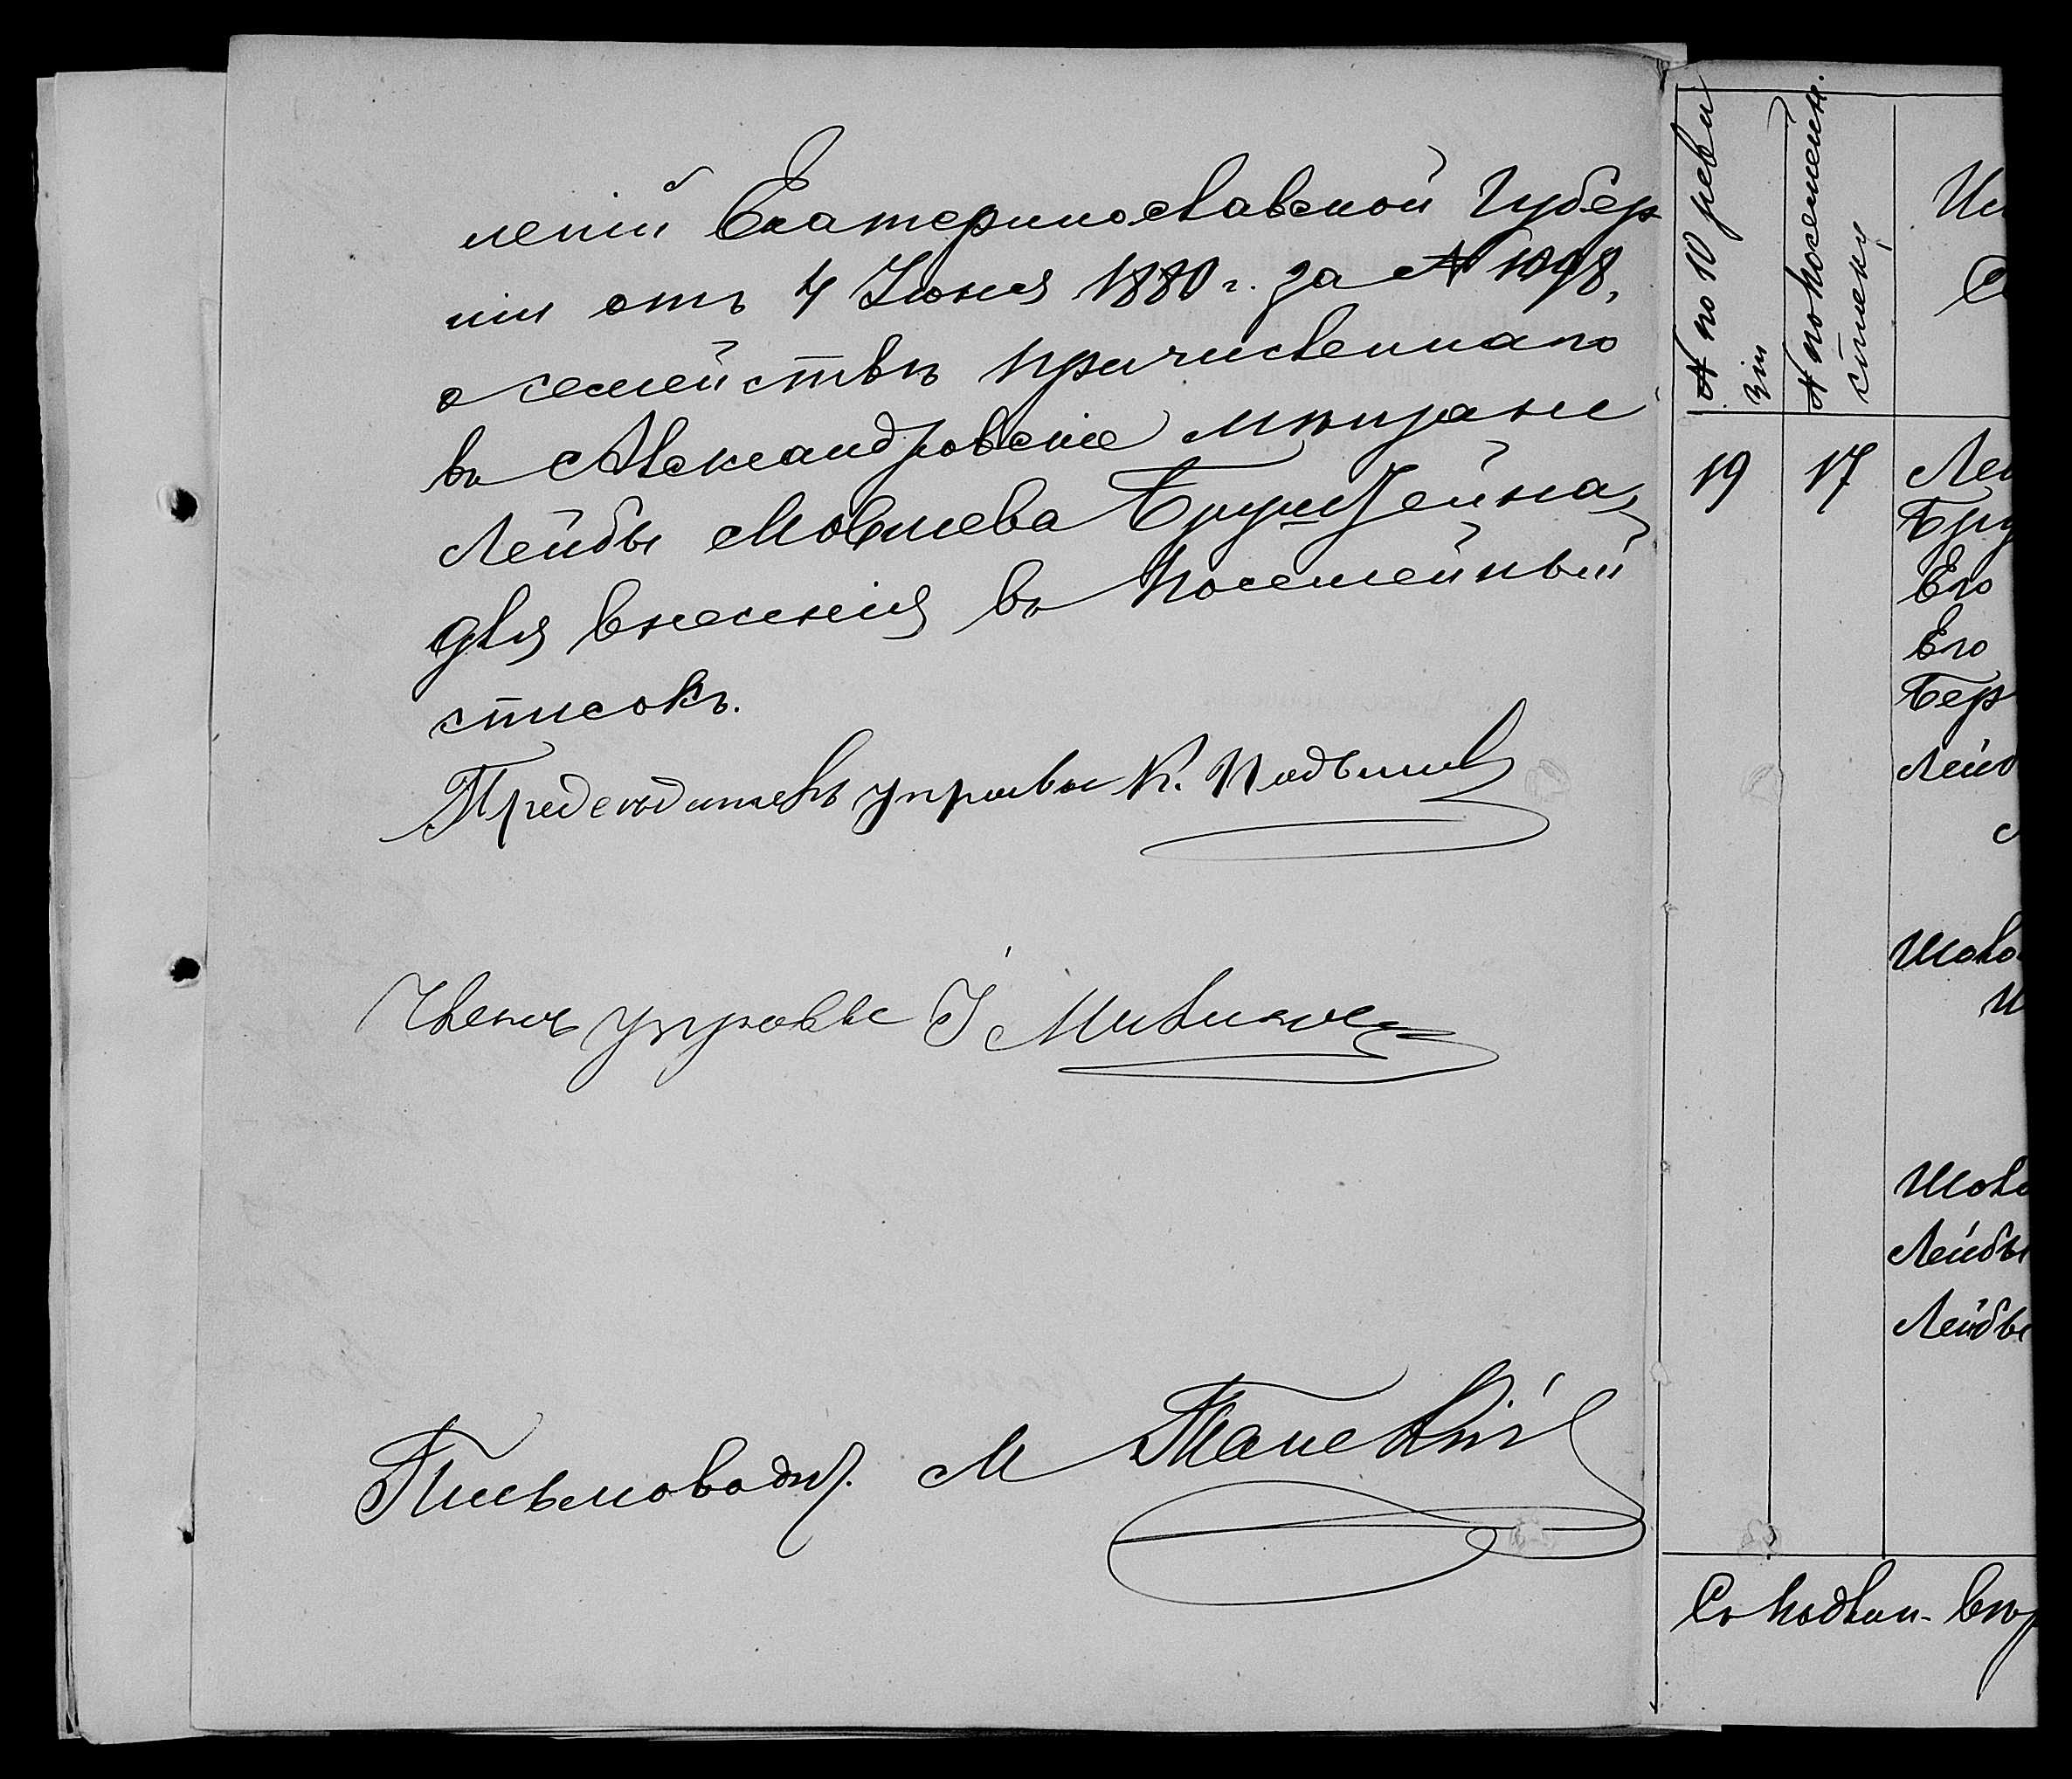 леній Екатеринославской Губер
ніи отъ 4 Іюня 1880 г. за № 1098,
о семействѣ причисленнаго
въ Александровскіе мѣщане
Лейбы Мовшева Бруштейна,
для внесенія въ посемейный
списокъ.
Предсѣдатель управы К.
Членъ управы І
Письмовод. М
№ по 10 реви
зіи
№ по посемейн.
списку
19 17 Лей
Бру
Его
Его
Бер
Лейб
Шоло
Шоло
Лейбы
Лейбы
Съ подлин. вѣр